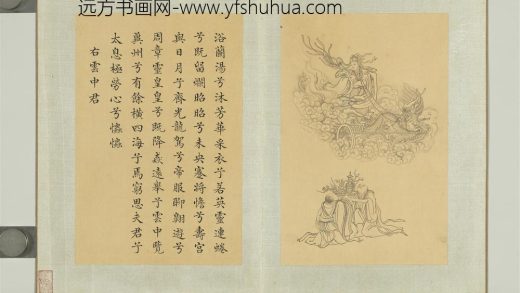 远方书画网-www.yfshuhua.com
浴蘭湯兮沐芳華采衣兮若英靈連蜷
兮既留爛昭昭兮未央蹇將憺兮壽宮
與日月兮齊光龍駕兮帝服聊翱遊兮
周章靈皇皇兮既降猋遠舉兮雲中覽
冀州兮有餘橫四海兮焉窮思夫君兮
太息極勞心兮
右雲中君